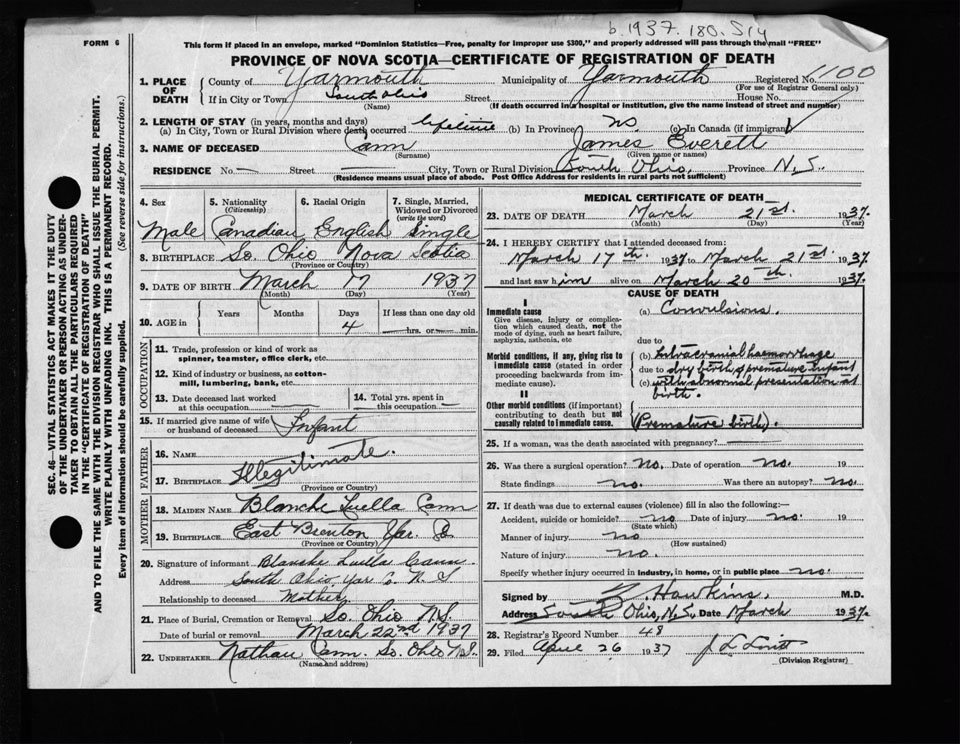 b. 1937. 180. 514
FORM 6
This form if placed in an envelope, marked "Dominion Statistics—Free, penalty for improper use $300," and properly addressed will pass through the mail "FREE"
PROVINCE OF NOVA SCOTIA—CERTIFICATE OF REGISTRATION OF DEATH
1. PLACE OF DEATH
County of Yarmouth Municipality of Yarmouth Registered No. 1100
(For use of Registrar General only.)
If in City or Town South Ohio Street House No.
(Name) (If death occurred in a hospital or institution, give the name instead of street and number)
2. LENGTH OF STAY (in years, months and days)
(a) In City, Town or Rural Division where death occurred lifetime (b) In Province NS (c) In Canada (if immigrant)
3. NAME OF DECEASED Cann James Everett
(Surname) (Given name or names)
RESIDENCE No. — Street — City, Town or Rural Division South Ohio, Province N.S.
(Residence means usual place of abode. Post Office Address for residents in rural parts not sufficient)
4. Sex 5. Nationality (Citizenship) 6. Racial Origin 7. Single, Married, Widowed or Divorced (write the word)
Male Canadian English Single
8. BIRTHPLACE So. Ohio Nova Scotia
(Province or Country)
9. DATE OF BIRTH March 17 1937
(Month) (Day) (Year)
10. AGE in Years Months Days If less than one day old
4 hrs. or min.
OCCUPATION
11. Trade, profession or kind of work as spinner, teamster, office clerk, etc.
12. Kind of industry or business, as cotton-mill, lumbering, bank, etc.
13. Date deceased last worked at this occupation
14. Total yrs. spent in this occupation —
15. If married give name of wife or husband of deceased Infant
FATHER
16. NAME
17. BIRTHPLACE Illegitimate.
(Province or Country)
MOTHER
18. MAIDEN NAME Blanche Luella Cann
19. BIRTHPLACE East Brenton Yar. Co
(Province or Country)
20. Signature of informant Blanche Luella Cann
Address South Ohio Yar Co N.S
Relationship to deceased Mother
21. Place of Burial, Cremation or Removal So. Ohio N.S.
Date of burial or removal March 22nd 1937
22. UNDERTAKER Nathan Cann So. Ohio N.S.
(Name and address)
MEDICAL CERTIFICATE OF DEATH
23. DATE OF DEATH March 21st. 1937.
(Month) (Day) (Year)
24. I HEREBY CERTIFY that I attended deceased from:
March 17th. 1937 to March 21st. 1937
and last saw him alive on March 20th. 1937.
CAUSE OF DEATH
I
Immediate cause
Give disease, injury or complication which caused death, not the mode of dying, such as heart failure, asphyxia, asthenia, etc
(a) Convulsions.
due to
Morbid conditions, if any, giving rise to immediate cause (stated in order proceeding backwards from immediate cause).
(b) Intracranial haemorrhage
due to dry birth of premature infant
(c) with abnormal presentation at birth.
II
Other morbid conditions (if important) contributing to death but not causally related to immediate cause.
(Premature birth).
25. If a woman, was the death associated with pregnancy? —
26. Was there a surgical operation? no. Date of operation no. 19
State findings no. Was there an autopsy? no.
27. If death was due to external causes (violence) fill in also the following:—
Accident, suicide or homicide? no Date of injury no. 19
(State which)
Manner of injury no
(How sustained)
Nature of injury no.
Specify whether injury occurred in industry, in home, or in public place no.
Signed by Z. Hawkins. M.D.
Address South Ohio, N.S. Date March 1937.
28. Registrar's Record Number 48
29. Filed April 26 1937
(Division Registrar)
SEC. 46—VITAL STATISTICS ACT MAKES IT THE DUTY
OF THE UNDERTAKER OR PERSON ACTING AS UNDER-
TAKER TO OBTAIN ALL THE PARTICULARS REQUIRED
IN THE "CERTIFICATE OF REGISTRATION OF DEATH"
AND TO FILE THE SAME WITH THE DIVISION REGISTRAR WHO SHALL ISSUE THE BURIAL PERMIT.
WRITE PLAINLY WITH UNFADING INK. THIS IS A PERMANENT RECORD.
Every item of information should be carefully supplied. (See reverse side for instructions.)